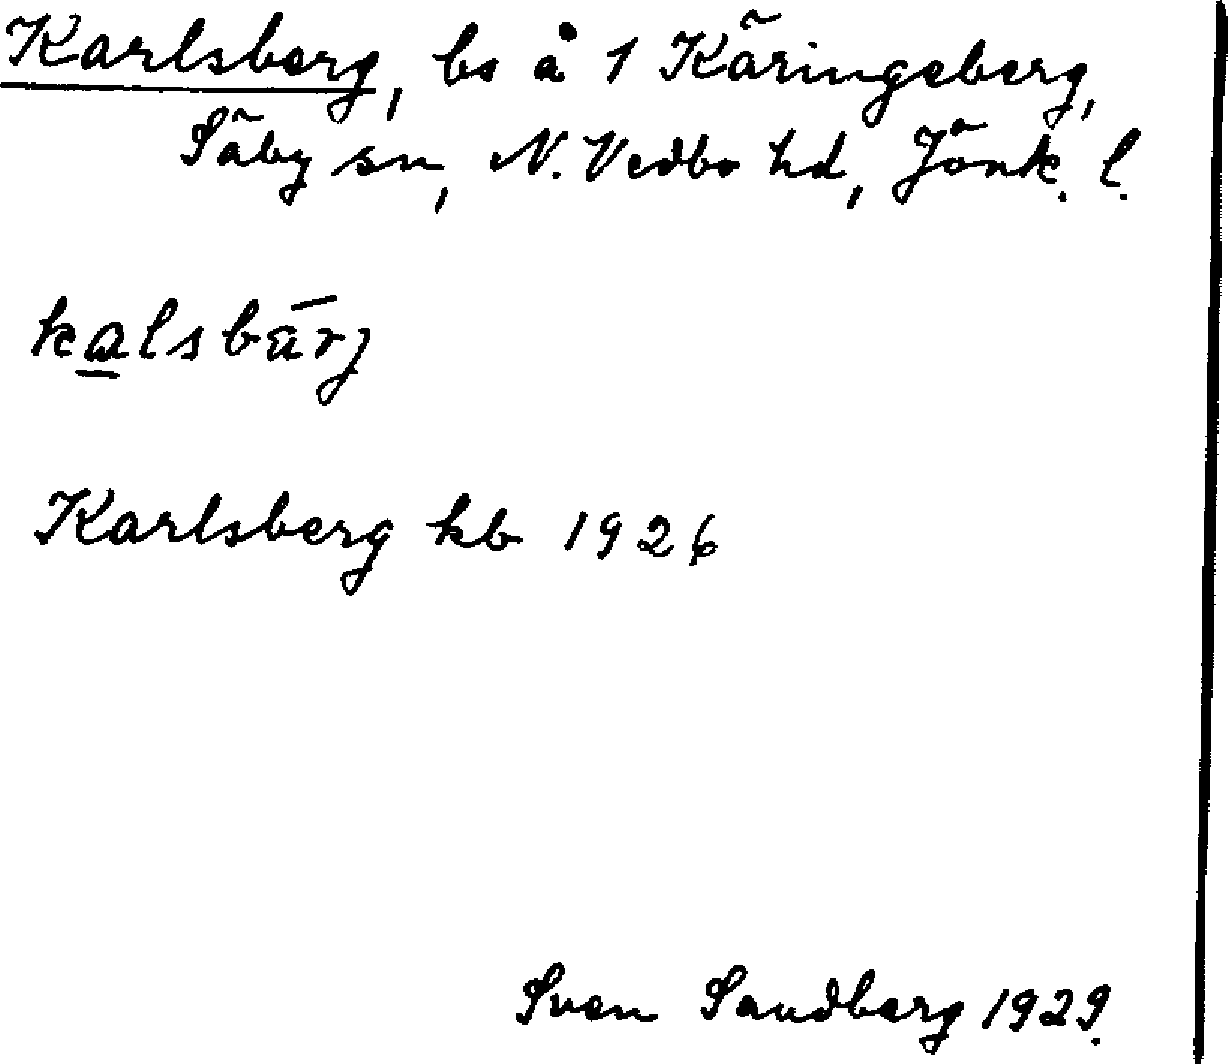 Karlsberg, bs å 1 Käringeberg,
Säby sn, N. Vedbo hd, Jönk. l.
kalsbärj
Karlsberg kb 1926
Sven Sandberg 1929.